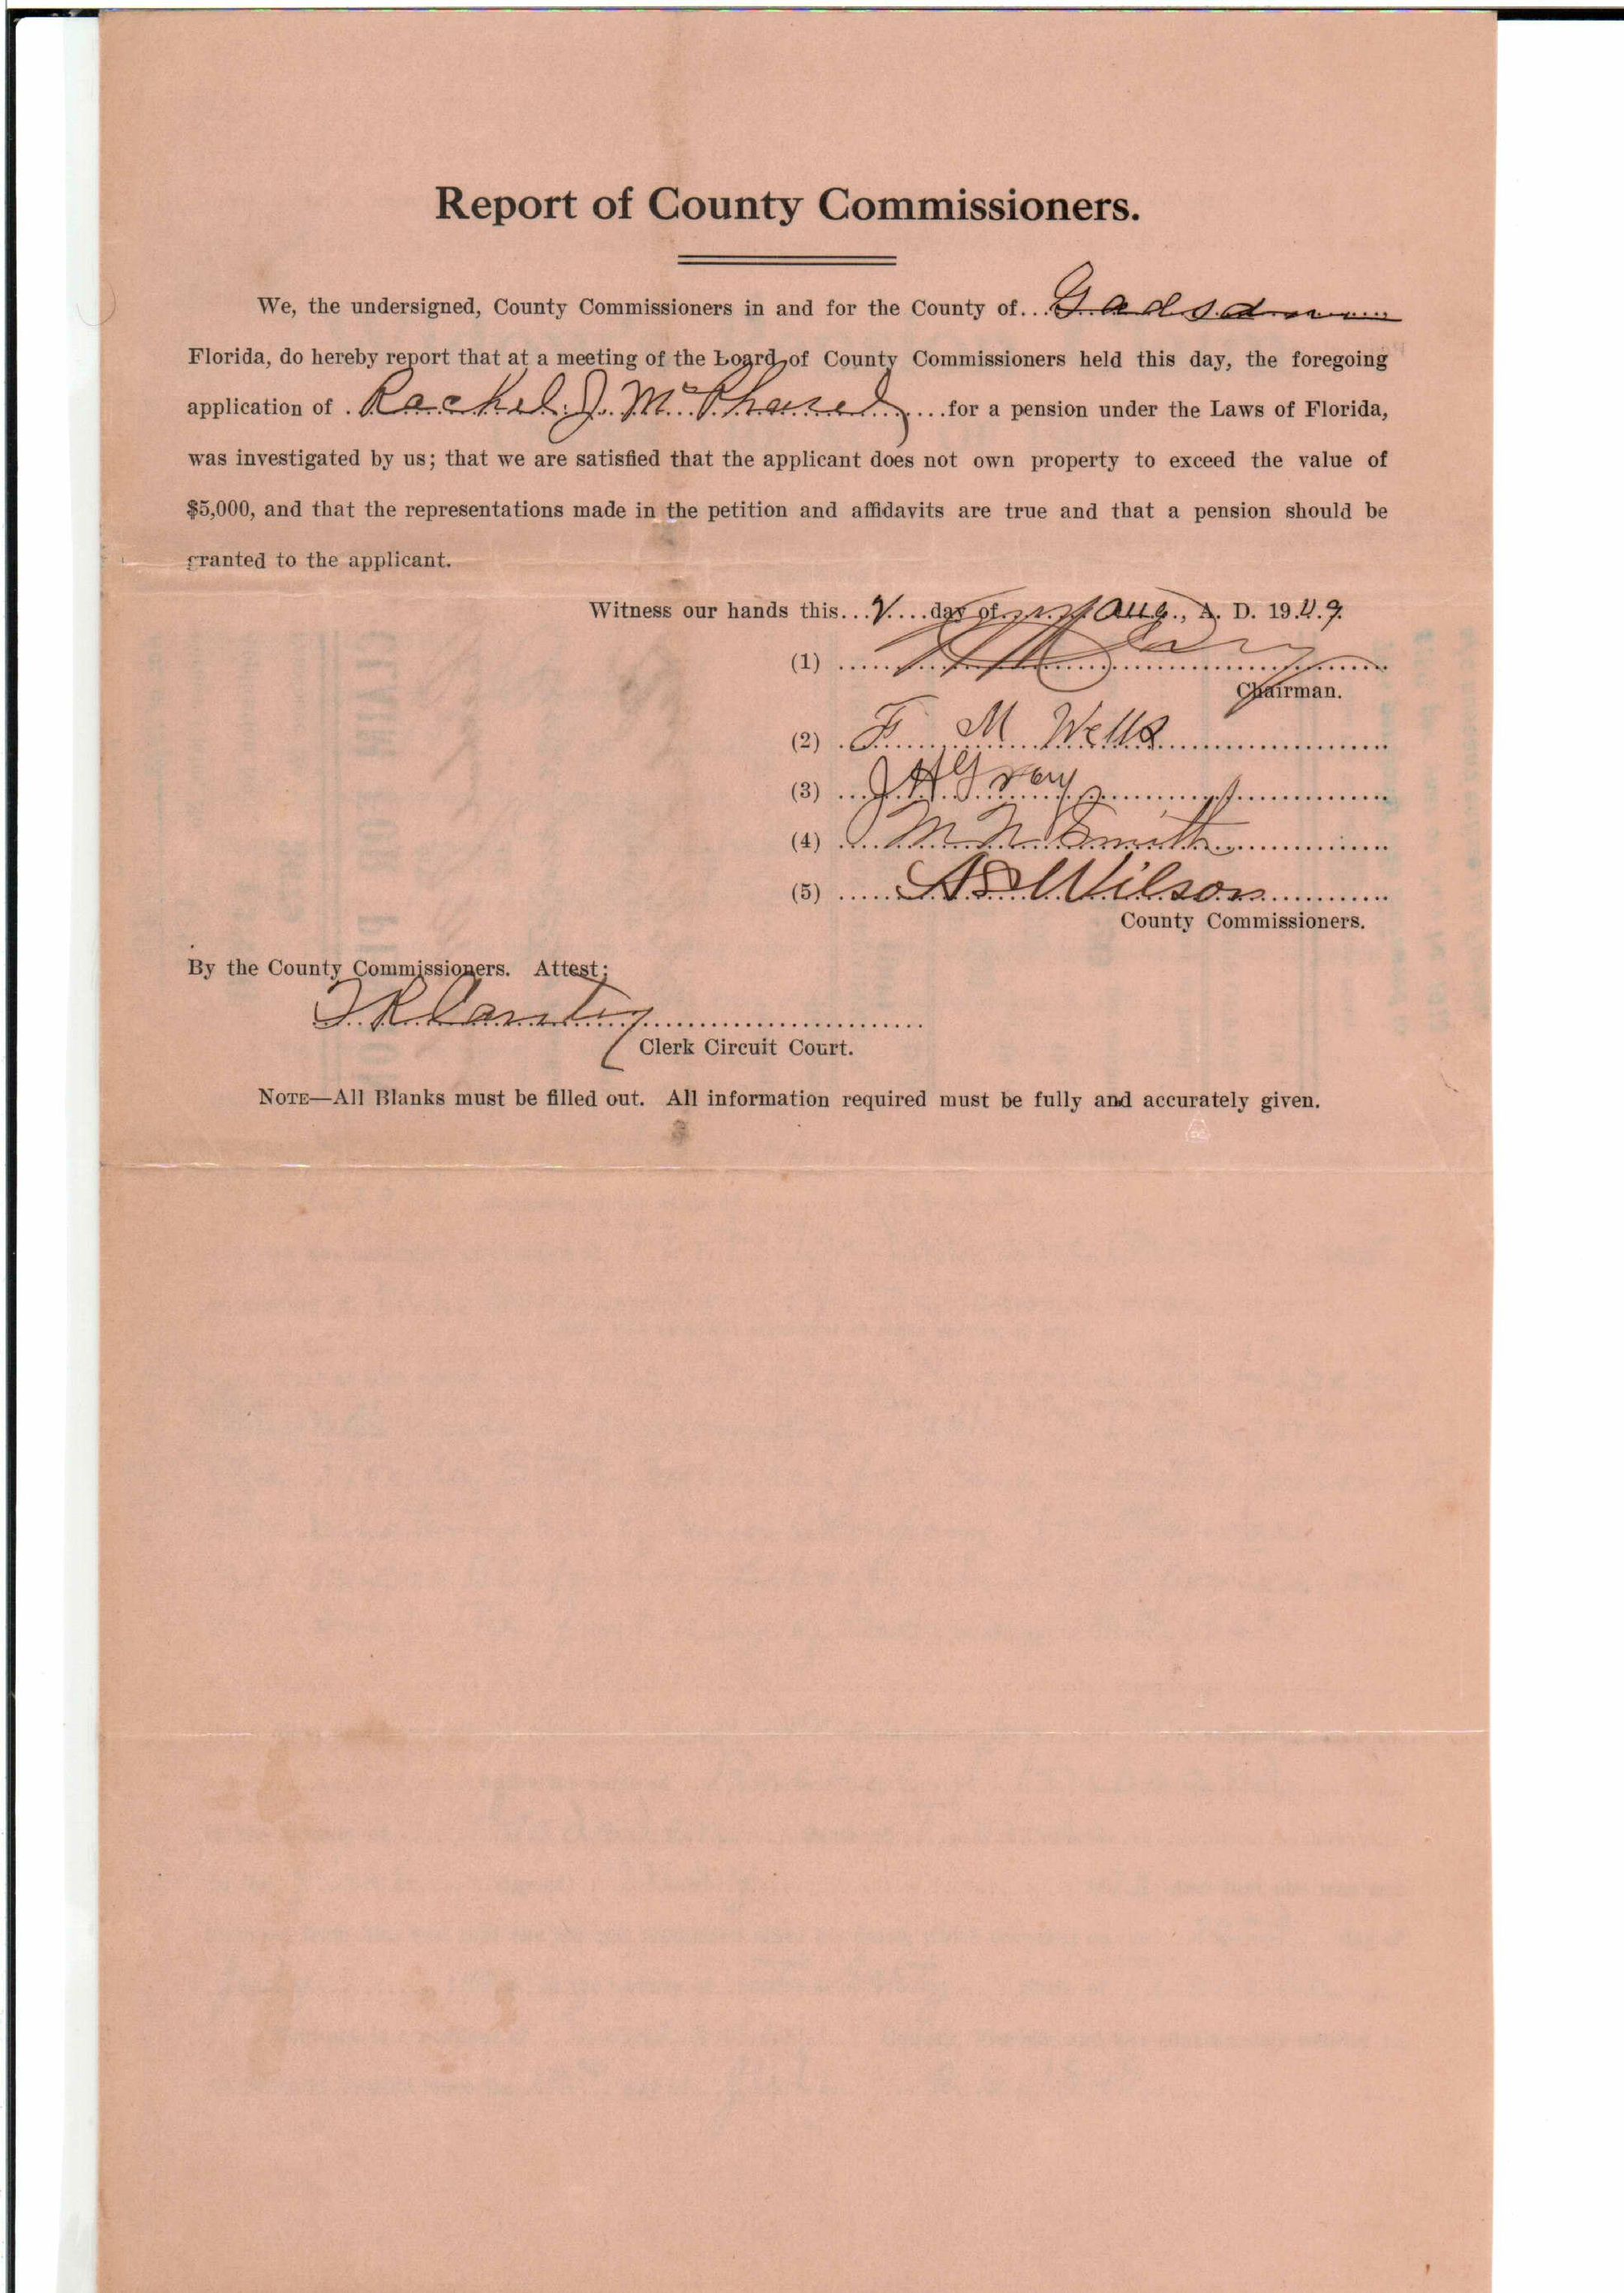 Report of County Commissioners.
We, the undersigned, County Commissioners in and for the County of... Gadsden
Florida, do hereby report that at a meeting of the Board of County Commissioners held this day, the foregoing
application of . Rachel J. Mc ....for a pension under the Laws of Florida,
was investigated by us; that we are satisfied that the applicant does not own property to exceed the value of
$5,000, and that the representations made in the petition and affidavits are true and that a pension should be
granted to the applicant.
Witness our hands this.......day of Aug., A. D. 19
(1)
Chairman.
(2) F. M Wells
(3) J H Gray
(4) M N Smith
(5) Wilson
County Commissioners.
By the County Commissioners. Attest;
Clerk Circuit Court.
NOTE—All Blanks must be filled out. All information required must be fully and accurately given.